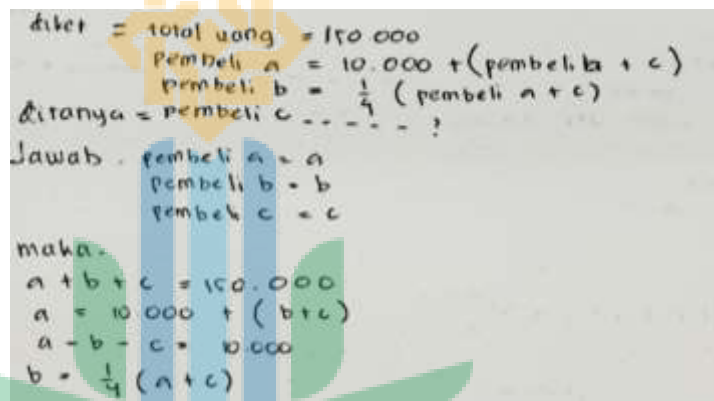 diket = total uang = 150 000
pembeli a = 10.000 + (pembeli b + c)
pembeli b = 1/4 (pembeli a + c)
ditanya = pembeli c - - - - - ?
Jawab . pembeli a = a
pembeli b = b
pembeli c = c
maka.
a + b + c = 150.000
a = 10 000 + (b+c)
a - b - c = 10.000
b = 1/4 (a + c)